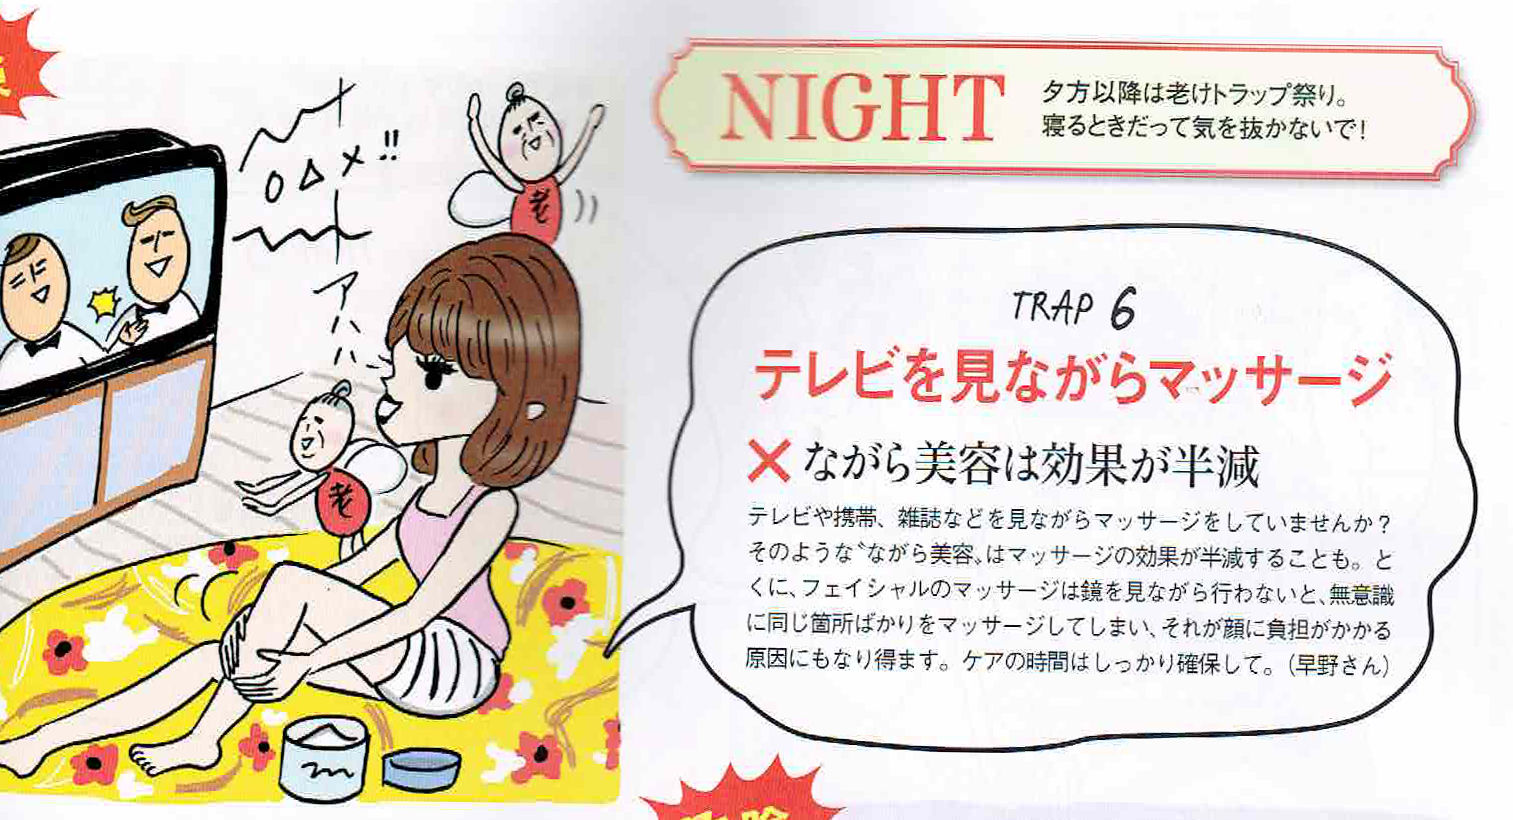 NIGHT
夕方以降は老けトラップ祭り。
寝るときだって気を抜かないで!
TRAP 6
テレビを見ながらマッサージ
×ながら美容は効果が半減
テレビや携帯、雑誌などを見ながらマッサージをしていませんか?
そのような〝ながら美容〟はマッサージの効果が半減することも。と
くに、フェイシャルのマッサージは鏡を見ながら行わないと、無意識
に同じ箇所ばかりをマッサージしてしまい、それが顔に負担がかかる
原因にもなり得ます。ケアの時間はしっかり確保して。(早野さん)
○△×!!
アハハ
老
老